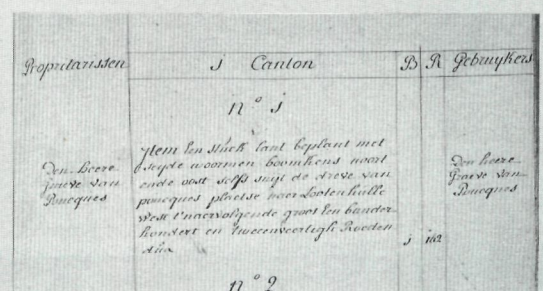 Proprietarissen 1 Canton B R Gebruykers
n.o 1
Den heere Grave van Poucques
Item Een stuck lant beplant met
seyde woormen boomkens noort
ende oost selfs suyt de dreve van
poucques plaetse naer Lootenhulle
West t'naervolgende groot Een bunder
hondert en tweenveertigh Roeden
dus
1 142
Den heere Graeve van Poucques
n.o 2